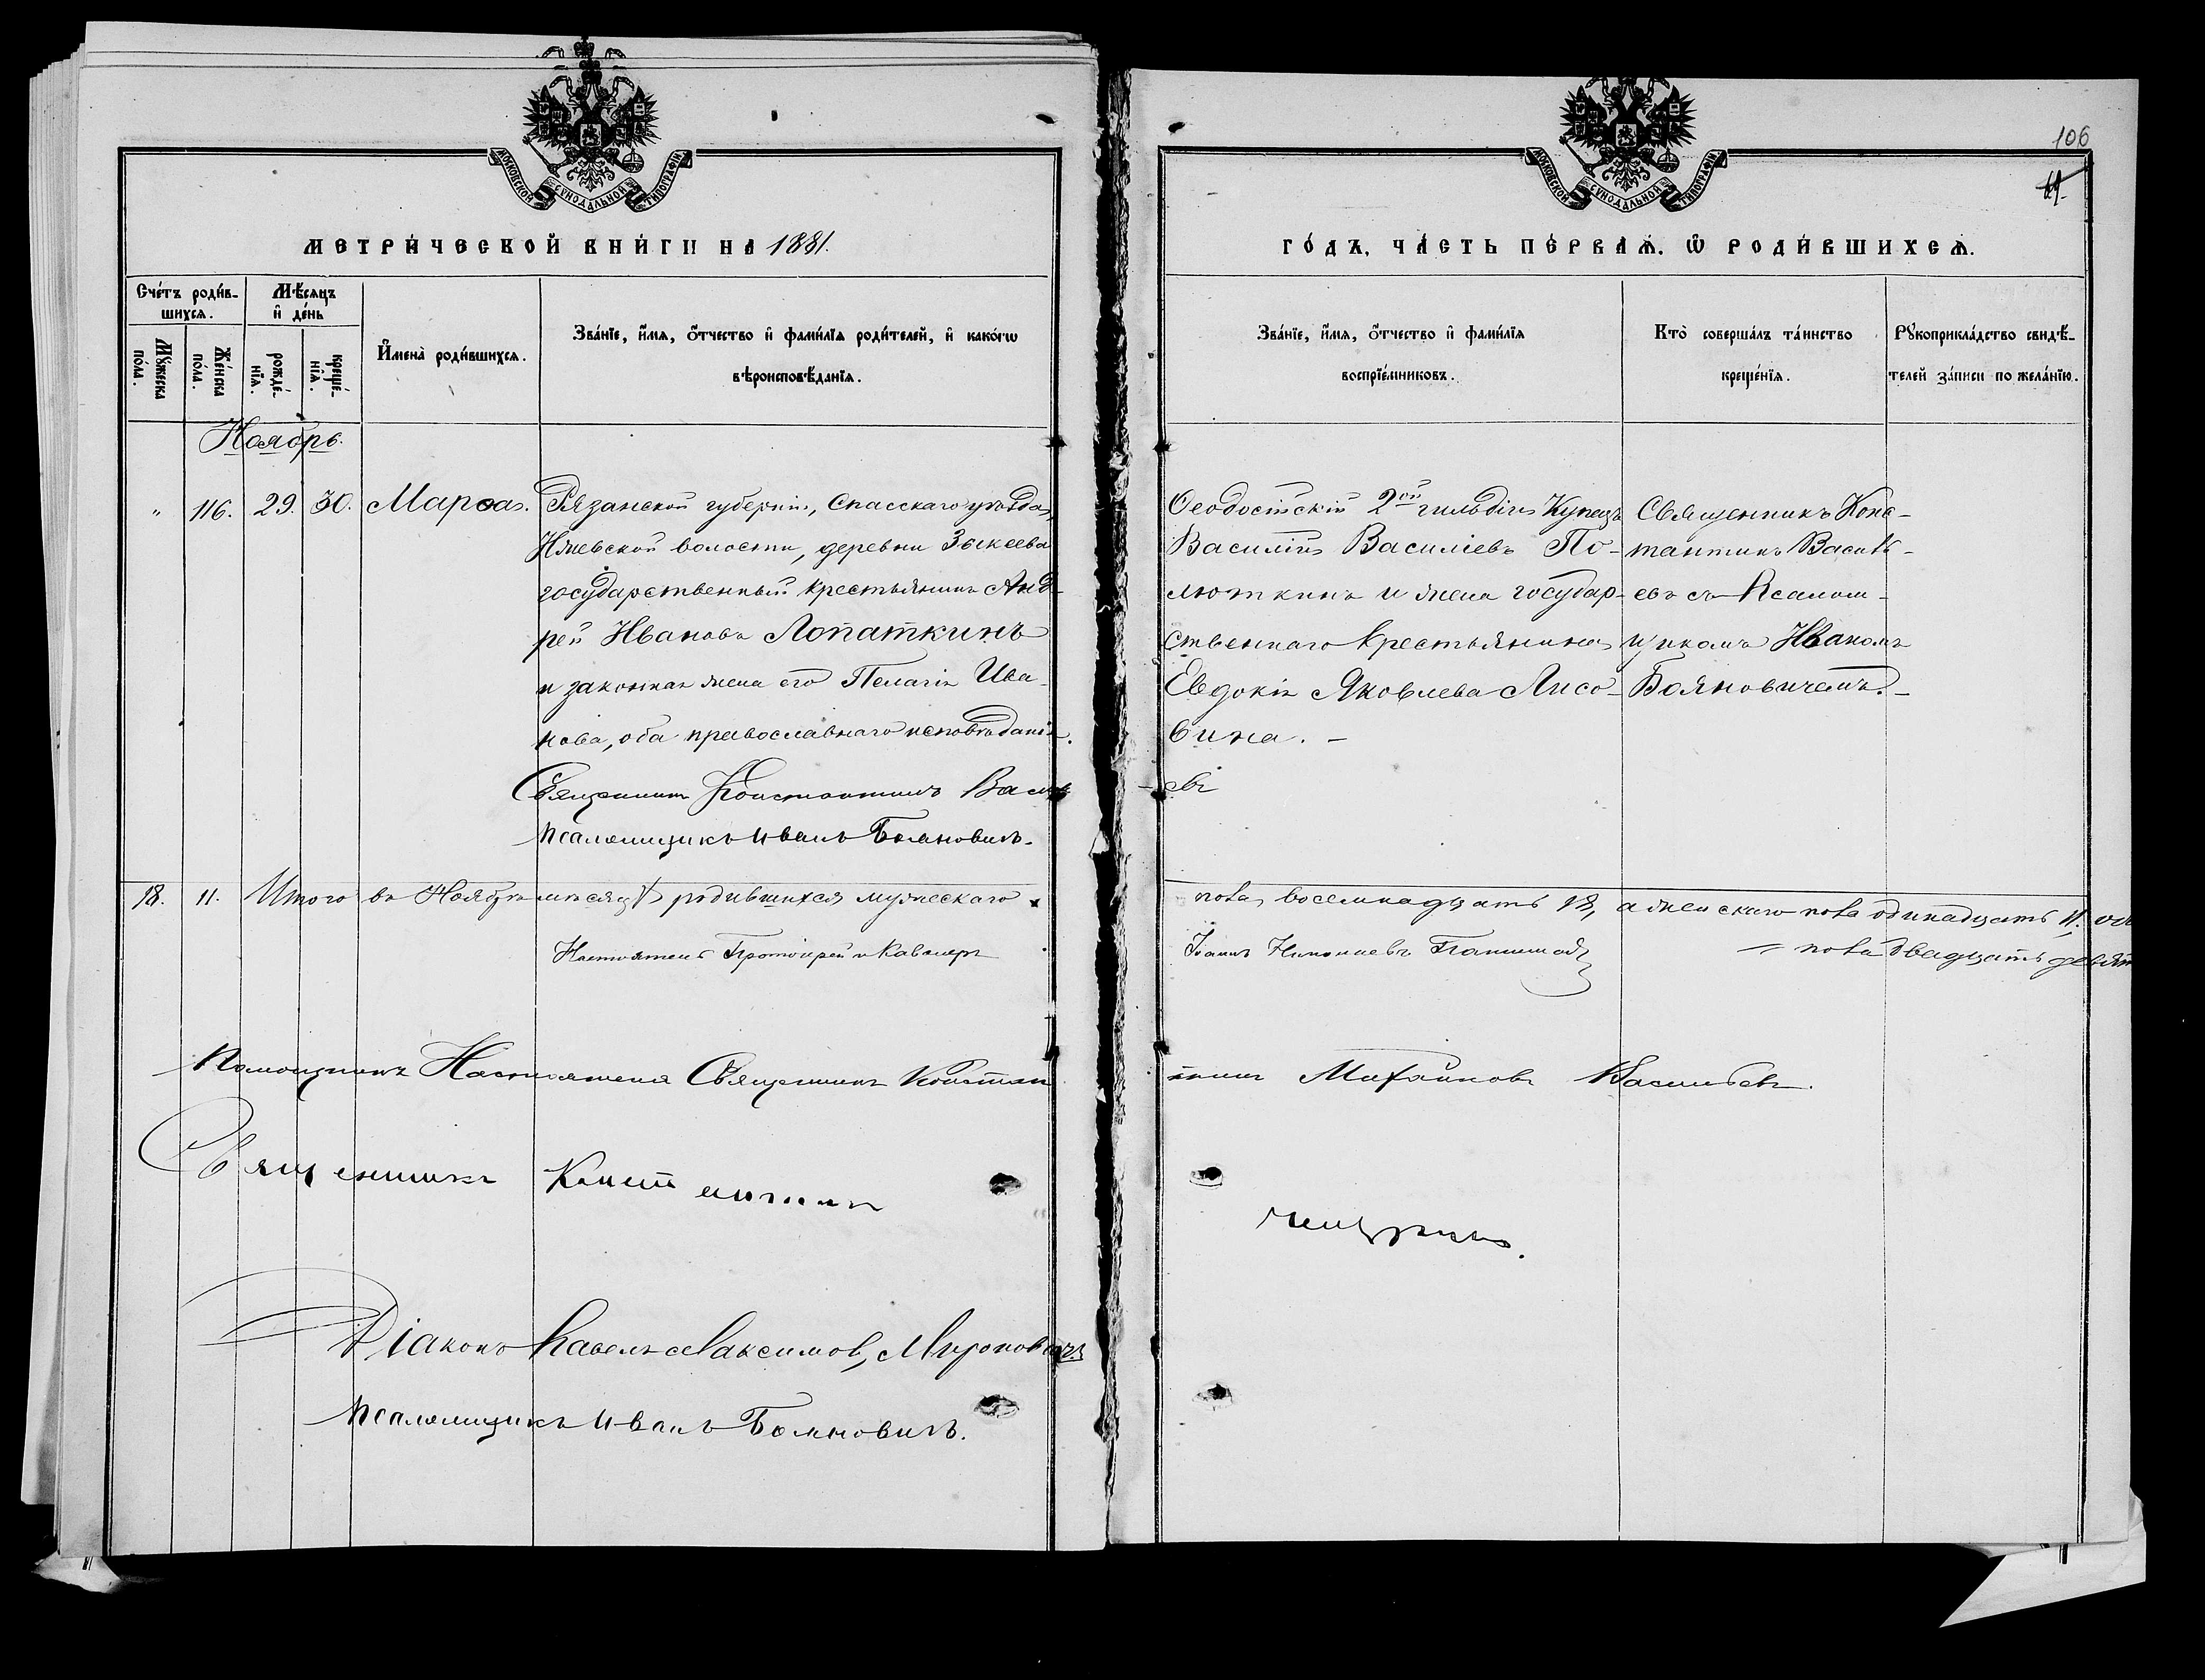 МОСКОВСКОЙ СѴНОДАЛЬНОЙ ТИПОГРАФІИ
МЕТРИ́ЧЕСКОЙ КНИ́ГИ НА 1881.
Сче́тъ роди́в-
шихсѧ.
Мѣ́сѧцъ
и҆ де́нь
Мꙋ́жеска
по́ла.
Же́нска
по́ла.
рожде́-
нїѧ.
креще́-
нїѧ.
И҆мена̀ роди́вшихсѧ.
Зва́нїе, и҆́мѧ, ѻ҆́тчество и҆ фами́лїѧ роди́телей, и҆ како́гѡ
вѣроисповѣ́данїѧ.
Ноябрь.
" 116. 29. 30. Марѳа. Рязанской губерніи, Спасскаго уѣзда,
волости, деревни Зыкеева
государственный крестьянинъ Анд-
рей Ивановъ Лопаткинъ
и законная жена его Пелагія Ива-
нова, оба православнаго исповѣданія.
Священникъ Константинъ Василь
Псаломщикъ Иванъ Бояновичъ.
18. 11. Итого въ Ноябрѣ мѣсяцѣ родившихся мужескаго
Настоятель Протоіерей и Кавалеръ
Помощникъ Настоятеля Священникъ Констан
Священникъ Константинъ
Діаконъ Павелъ Максимовъ Мироновичъ
Псаломщикъ Иванъ Бояновичъ.
106
МОСКОВСКОЙ СѴНОДАЛЬНОЙ ТИПОГРАФІИ
ГО́ДЪ, ЧА́СТЬ ПЕ́РВАѦ, Ѡ҆ РОДИ́ВШИХСѦ.
Зва́нїе, и҆́мѧ, ѻ҆́тчество и҆ фами́лїѧ
воспрїе́мниковъ.
Кто̀ соверша́лъ та́инство
креще́нїѧ.
Рꙋкоприкла́дство свидѣ́-
телей за́писи по жела́нїю.
Ѳеодосійскій 2ой гильдіи Купецъ
Василій Василіевъ По-
люткинъ и жена государ-
ственнаго крестьянина
Евдокія Яковлева Лисо-
вина. –
Священникъ Конс-
тантинъ Василь-
евъ съ Псалом-
щикомъ Иваномъ
Бояновичемъ. –
евъ
пола восемнадцать 18, а женскаго пола одинадцать 11.
Іоаннъ Николаевъ
– пола двадцать девят
тинъ Михайловъ Васильевъ.